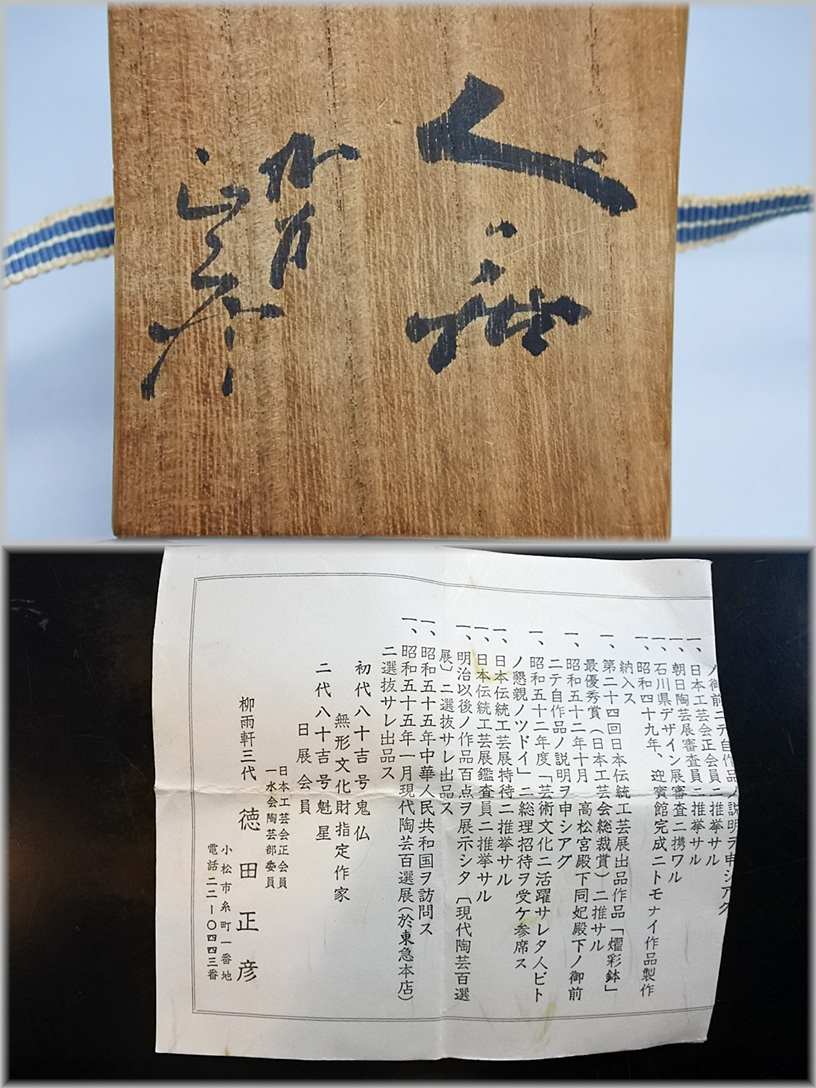 ノ御前ニテ自作品ノ説明ヲ申シアグ
一、日本工芸会正会員ニ推挙サル
一、朝日陶芸展審査員ニ推挙サル
一、石川県デザイン展審査ニ携ワル
一、昭和四十九年、迎賓館完成ニトモナイ作品製作
納入ス
一、第二十四回日本伝統工芸展出品作品「燿彩鉢」
最優秀賞(日本工芸会総裁賞)ニ推サル
一、昭和五十二年十月、高松宮殿下同妃殿下ノ御前
ニテ自作品ノ説明ヲ申シアグ
一、昭和五十二年度「芸術文化ニ活躍サレタ人ビト
ノ懇親ノツドイ」ニ総理招待ヲ受ケ参席ス
一、日本伝統工芸展特待ニ推挙サル
一、日本伝統工芸展鑑査員ニ推挙サル
一、明治以後ノ作品百点ヲ展示シタ〔現代陶芸百選
展〕ニ選抜サレ出品ス
一、昭和五十五年中華人民共和国ヲ訪問ス
一、昭和五十五年一月現代陶芸百選展(於東急本店)
ニ選抜サレ出品ス
初代八十吉号鬼仏
無形文化財指定作家
二代八十吉号魁星
日展会員
日本工芸会正会員
一水会陶芸部委員
柳雨軒三代 徳田正彦
小松市糸町一番地
電話二二-〇四四三番